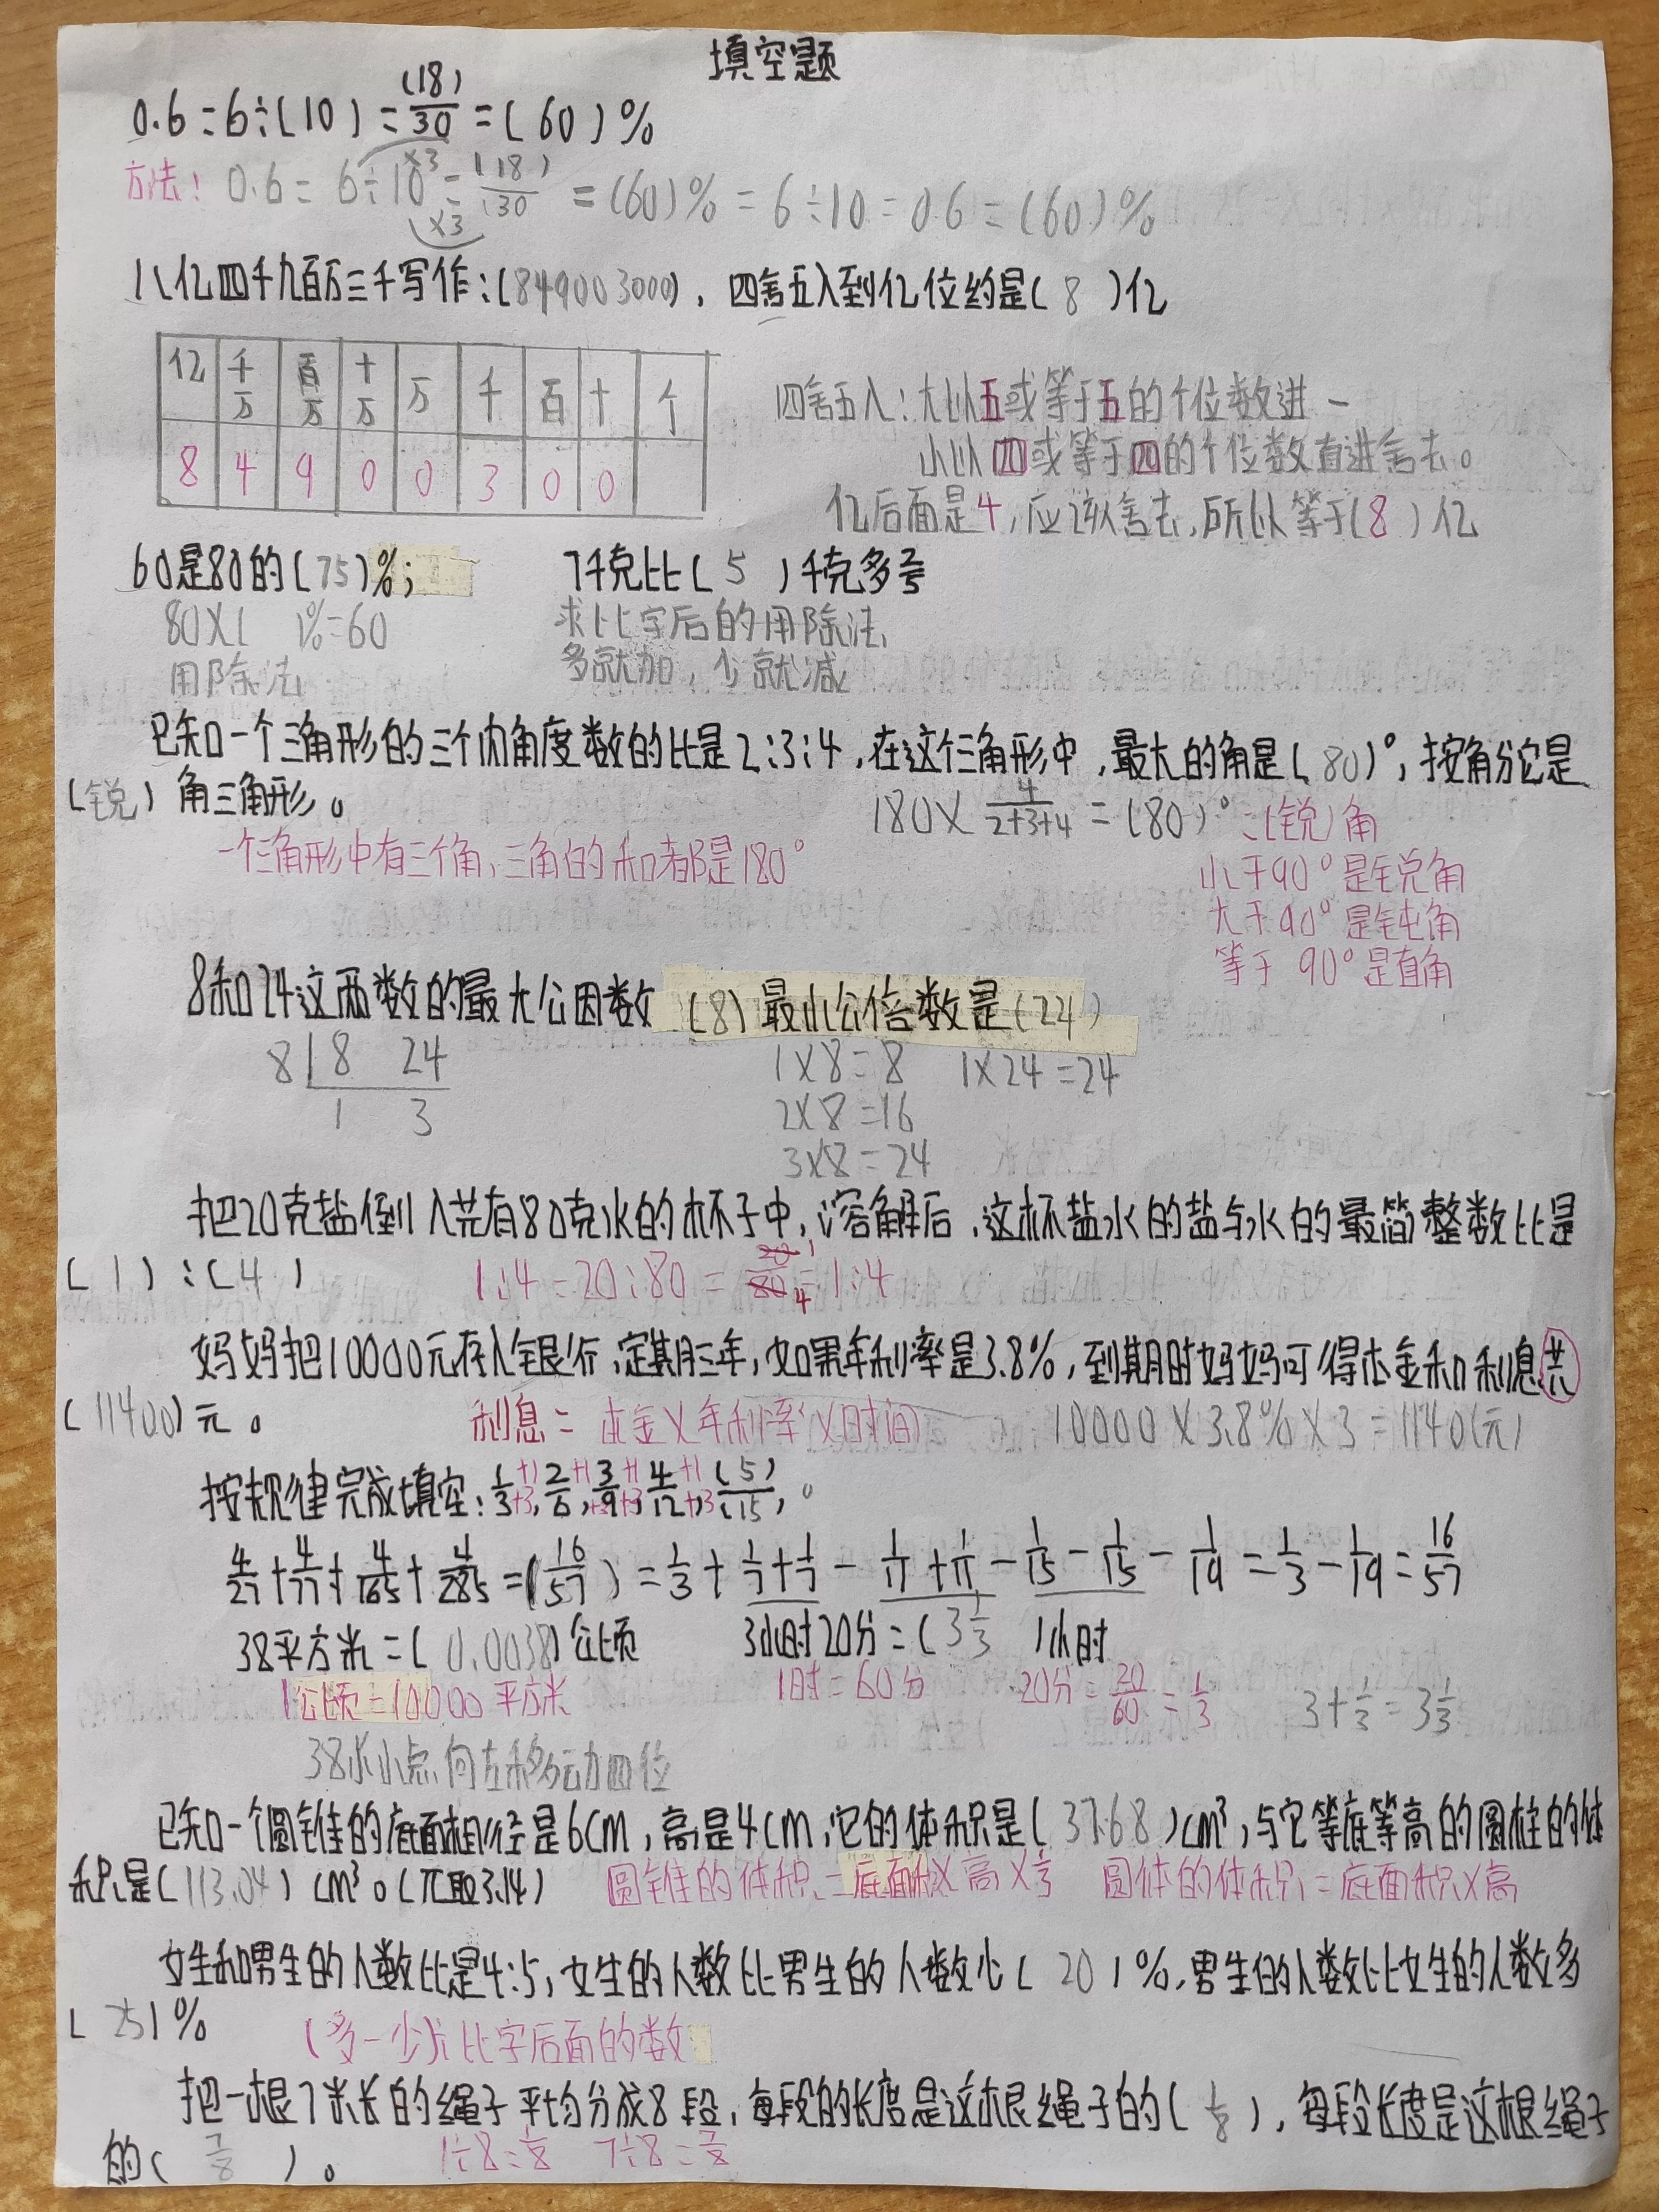 填空题
0.6=6÷(10)=(18)/30=(60)%
方法: 0.6=6÷10=(18)/30=(60)%=6÷10=0.6=(60)%
×3
×3
八亿四千九百万三千写作:(849003000), 四舍五入到亿位约是(8)亿
亿 千万 百万 十万 万 千 百 十 个
8 4 9 0 0 3 0 0
四舍五入:大以五或等于五的个位数进一
小以四或等于四的个位数直进舍去。
亿后面是4,应该舍去,所以等于(8)亿
60是80的(75)%; 7千克比(5)千克多
80×( )%=60 求比字后的用除法,
用除法 多就加,少就减
已知一个三角形的三个内角度数的比是2:3:4,在这个三角形中,最大的角是(80)°,按角分它是
(锐)角三角形。 180×4/(2+3+4)=(80)°=(锐)角
一个三角形中有三个角,三角的和都是180°
小于90°是锐角
大于90°是钝角
等于90°是直角
8和24这两数的最大公因数(8)最小公倍数是(24)
8 8 24 1×8=8 1×24=24
1 3 2×8=16
3×8=24
把20克盐倒入芫有80克水的杯子中,溶解后,这杯盐水的盐与水的最简整数比是
(1):(4) 1:4=20:80=20/80=1:4
妈妈把10000元存入银行,定期三年,如果年利率是3.8%,到期时妈妈可得本金和利息共
(11400)元。 利息=本金×年利率×时间 10000×3.8%×3=1140(元)
按规律完成填空:1/3,2/6,3/9,4/12,(5)/(15)。
4/27+4/77+4/165+4/285=(16/57)=1/3+1/7+1/7-1/11+1/11-1/15-1/15-1/19=1/3-1/19=16/57
38平方米=(0.0038)公顷 3小时20分=(3 1/3)小时
1公顷=10000平方米 1时=60分 20分=20/60=1/3 3+1/3=3 1/3
38水小点向左移动四位
已知一个圆锥的底面直径是6cm,高是4cm,它的体积是(37.68)cm³,与它等底等高的圆柱的体
积是(113.04)cm³。(π取3.14) 圆锥的体积=底面积×高×1/3 圆体的体积=底面积×高
女生和男生的人数比是4:5,女生的人数比男生的人数少(20)%,男生的人数比女生的人数多
(25)% (多-少)÷比字后面的数
把一根7米长的绳子平均分成8段,每段的长度是这根绳子的(1/8),每段长度是这根绳子
的(7/8)。 1÷8=1/8 7÷8=7/8